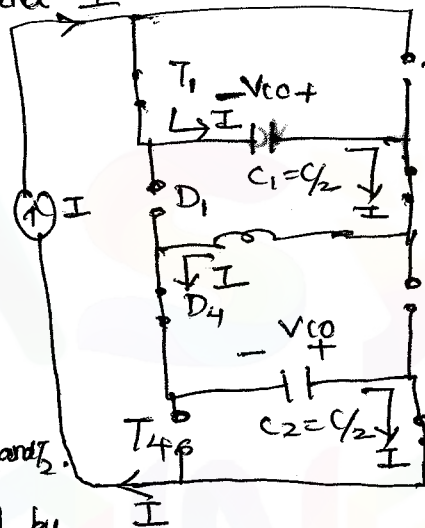 I
T1
-VCO+
I
C1=C/2
I
I
D1
I
D4
VCO
- +
T4
C2=C/2
I
and T2.
I
by